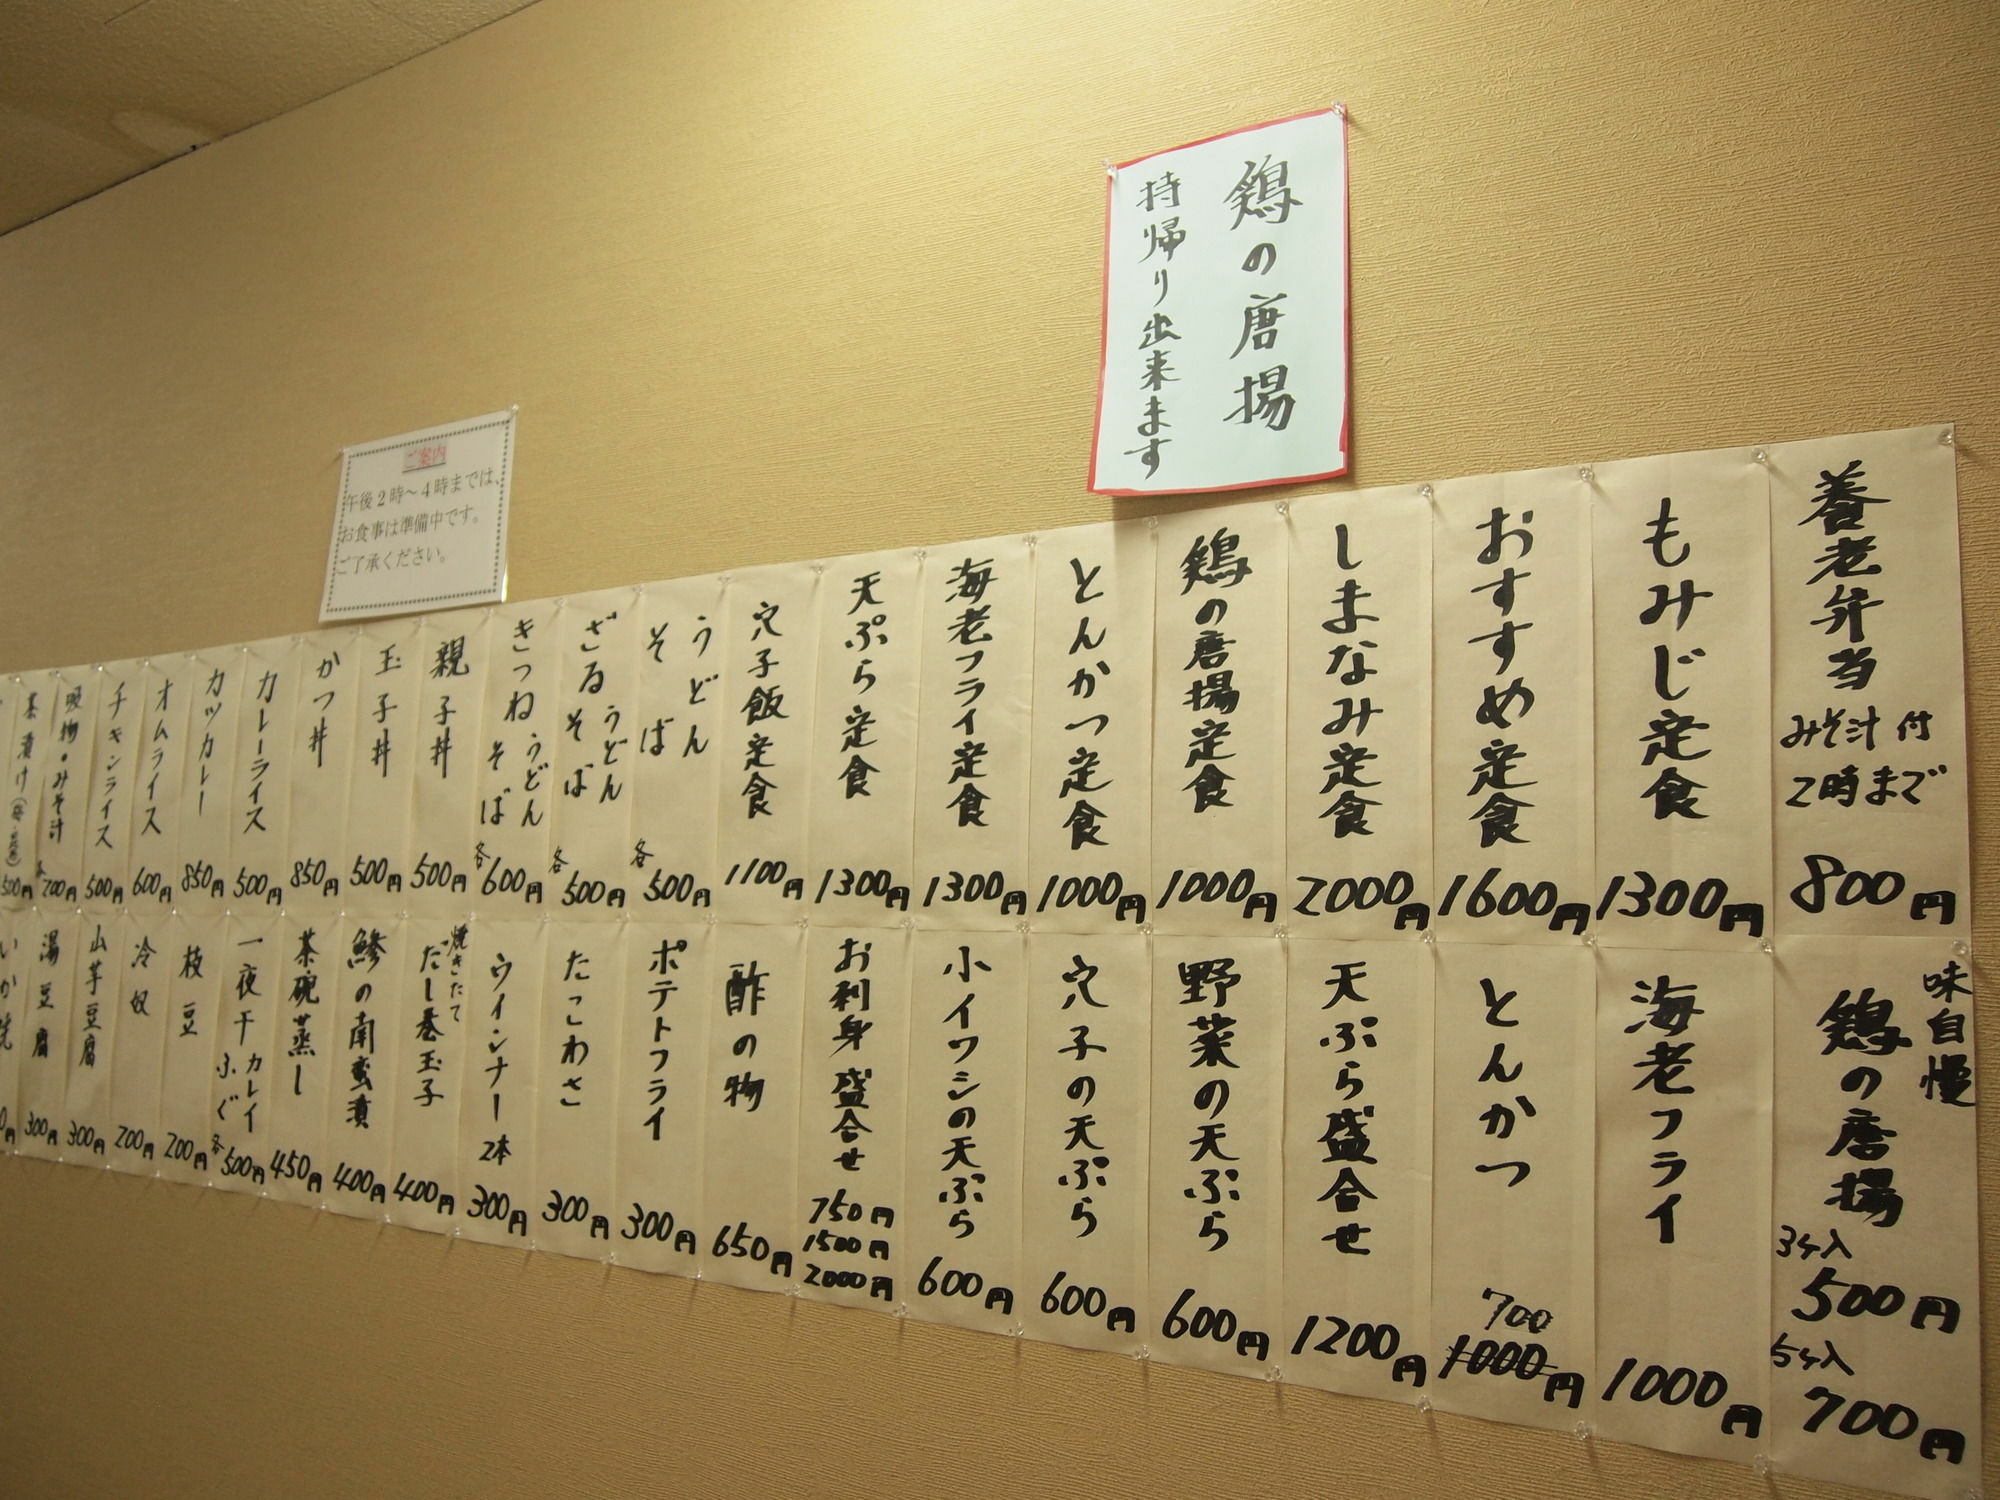 鶏の唐揚
持帰り出来ます
ご案内
午後2時～4時までは、
お食事は準備中です。
ご了承ください。
養老弁当
みそ汁付
2時まで
800円
もみじ定食
1300円
おすすめ定食
1600円
しまなみ定食
2000円
鶏の唐揚定食
1000円
とんかつ定食
1000円
海老フライ定食
1300円
天ぷら定食
1300円
穴子飯定食
1100円
うどん
そば
各500円
ざるうどん
そば
各500円
きつねうどん
そば
各600円
親子丼
500円
玉子丼
500円
かつ丼
850円
カレーライス
500円
カツカレー
850円
オムライス
600円
チキンライス
500円
吸物・みそ汁
200円
茶漬け
500円
味自慢
鶏の唐揚
3ケ入
500円
5ケ入
700円
海老フライ
1000円
とんかつ
700
1000円
天ぷら盛合せ
1200円
野菜の天ぷら
600円
穴子の天ぷら
600円
小イワシの天ぷら
600円
お刺身盛合せ
750円
1500円
2000円
酢の物
650円
ポテトフライ
300円
たこわさ
300円
ウインナー2本
300円
焼きたて
だし巻玉子
400円
鯵の南蛮漬
400円
茶碗蒸し
450円
一夜干カレイ
ふぐ
各500円
枝豆
200円
冷奴
200円
山芋豆腐
300円
湯豆腐
300円
いか焼